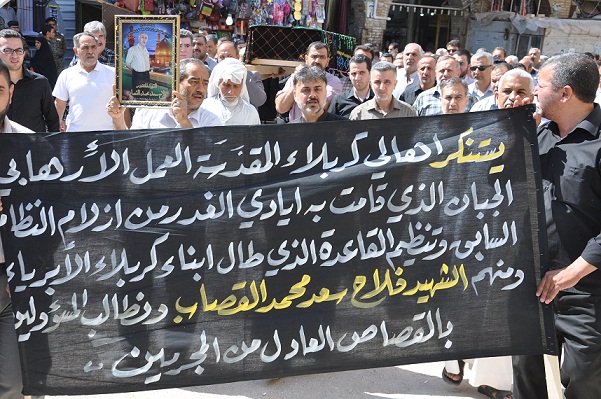 يستنكر اهالي كربلاء المقدسة العمل الأرهابي
الجبان الذي قامت به ايادي الغدر من ازلام النظام
السابق وتنظيم القاعدة الذي طال ابناء كربلاء الأبرياء
ومنهم الشهيد فلاح سعد محمد القصاب ونطالب المسؤولين
بالقصاص العادل من المجرمين ..